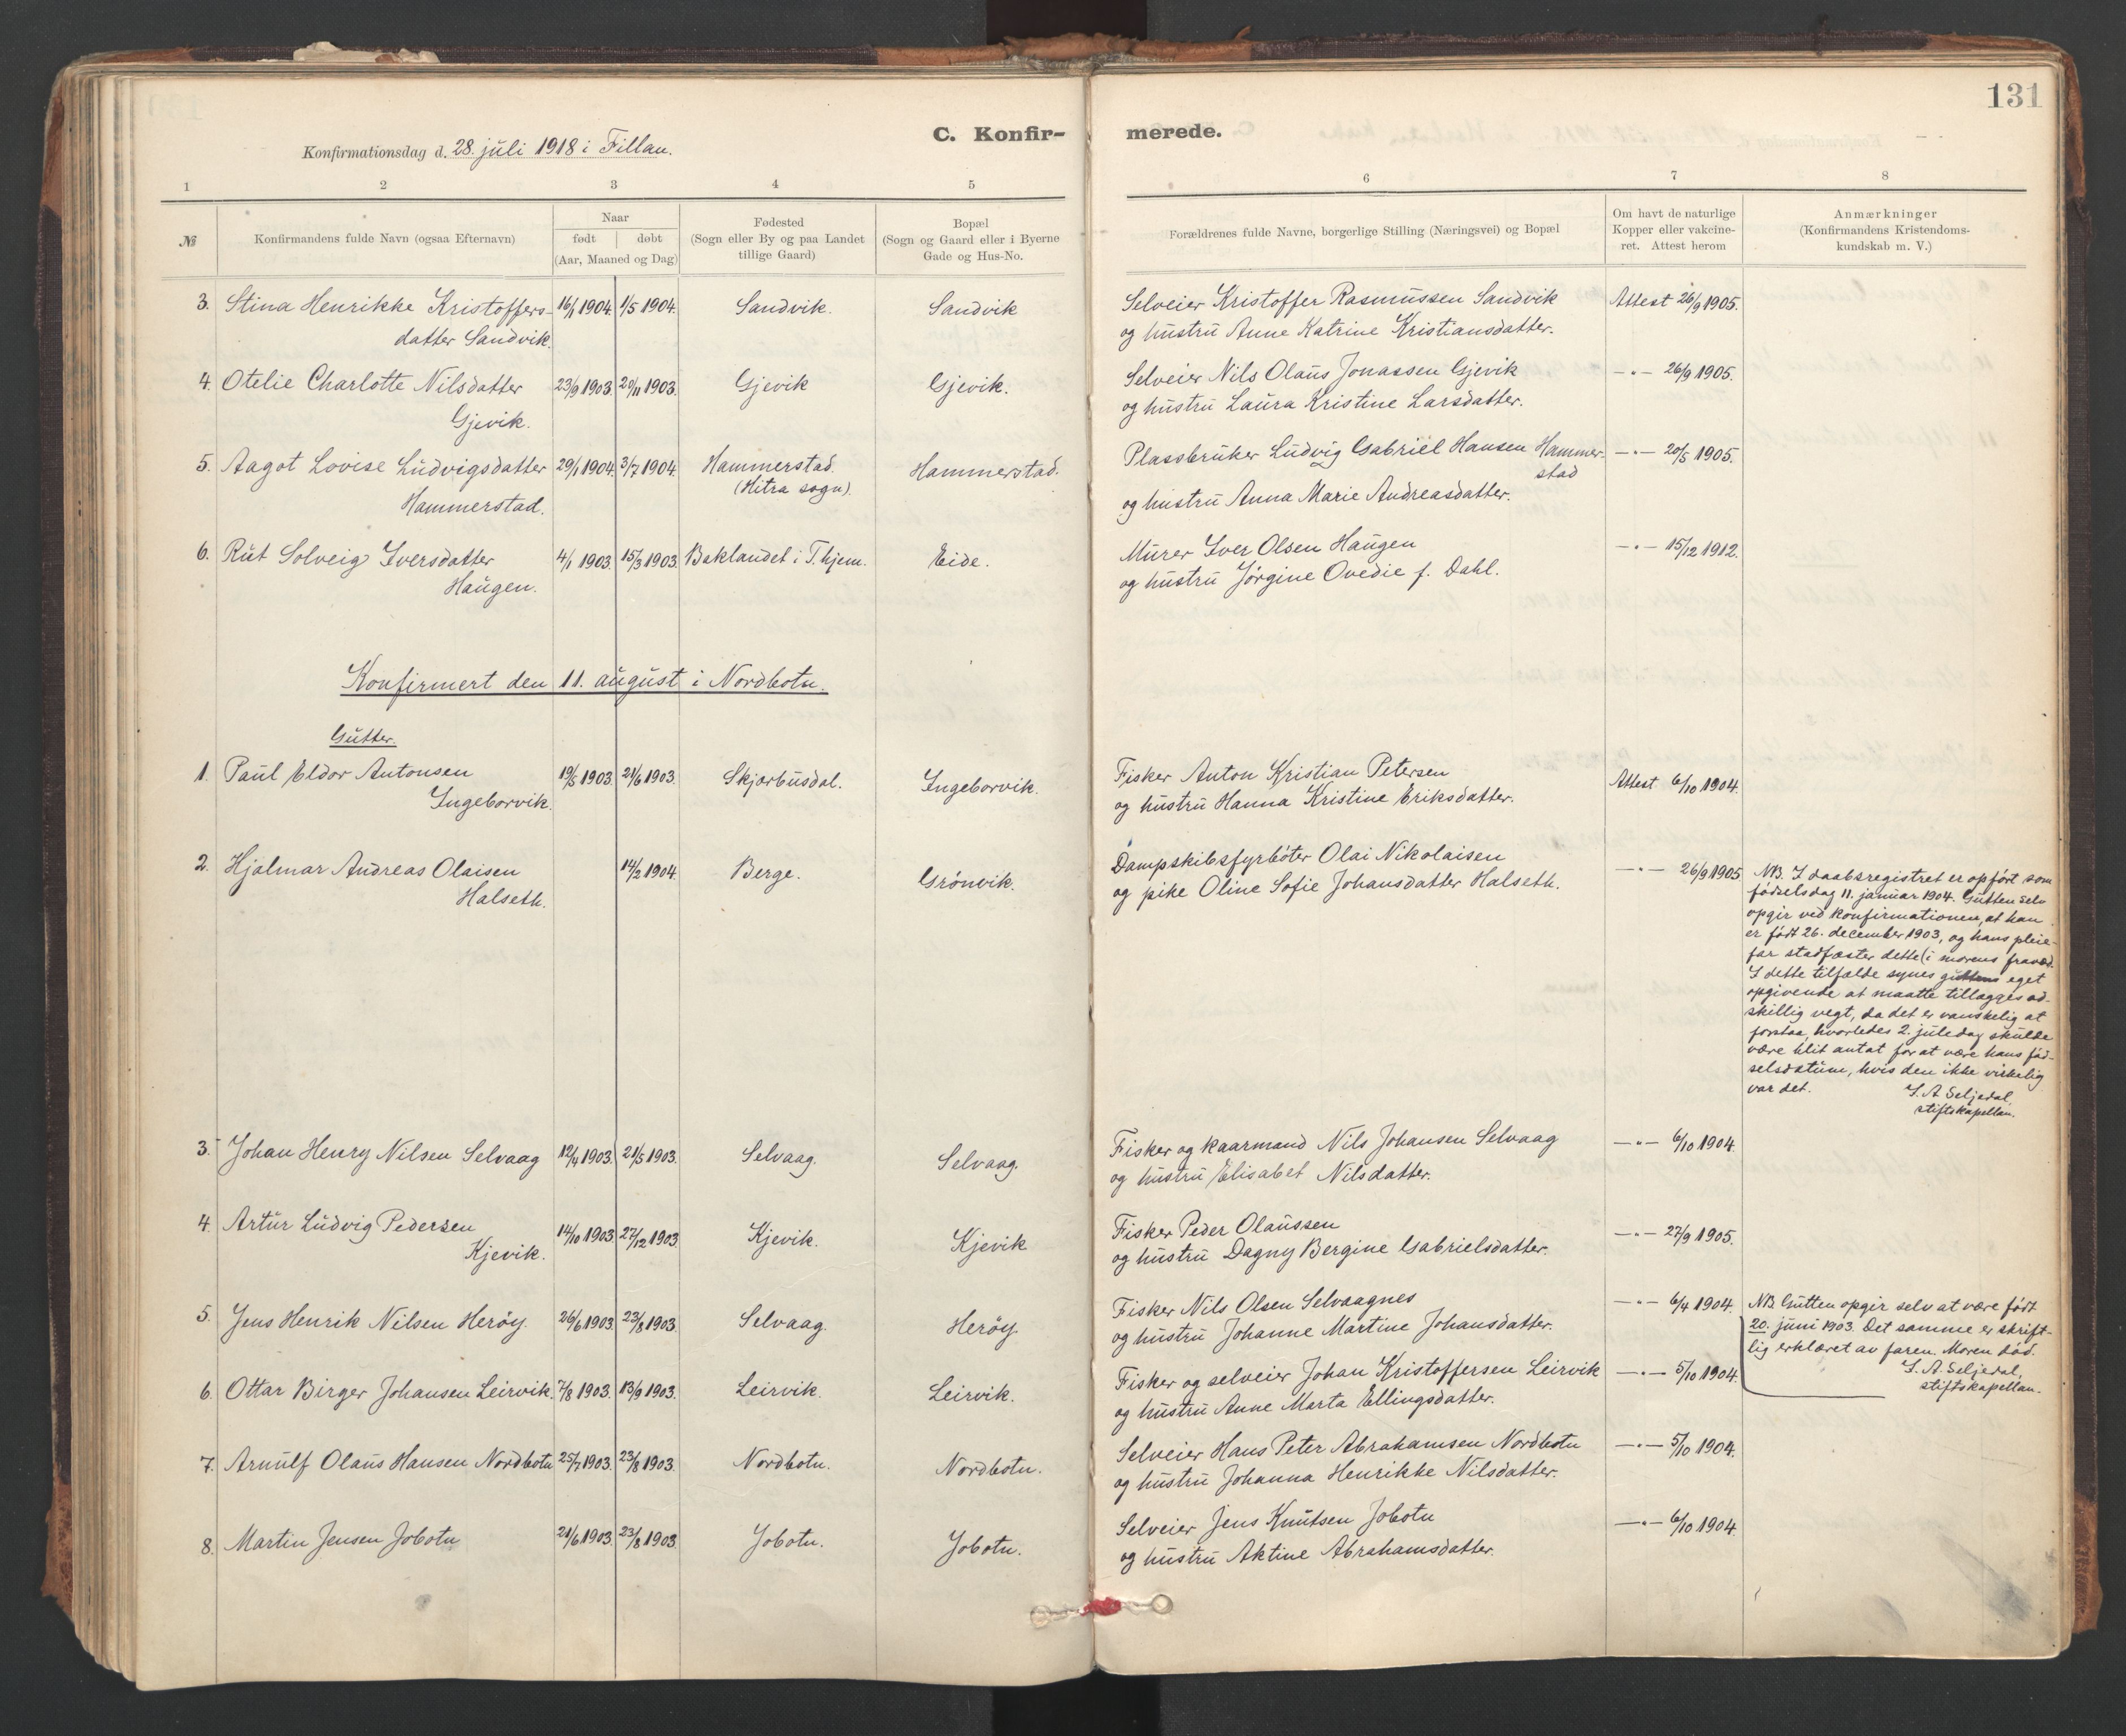 131
C. Konfir- merede.
Konfirmationsdag d. 28. juli 1918 i Fillan.
1 2 3 4 5 6 7 8
№
Konfirmandens fulde Navn (ogsaa Efternavn)
Naar
født døbt
(Aar, Maaned og Dag)
Fødested
(Sogn eller By og paa Landet
tillige Gaard)
Bopæl
(Sogn og Gaard eller i Byerne
Gade og Hus-No.
Forældrenes fulde Navne, borgerlige Stilling (Næringsvei) og Bopæl
Om havt de naturlige
Kopper eller vakcine-
ret. Attest herom
Anmærkninger
(Konfirmandens Kristendoms-
kundskab m. V.)
3. Stina Henrikke Kristoffers- 16/1 1904. 1/5 1904. Sandvik. Sandvik Selveier Kristoffer Rasmussen Sandvik Attest 26/9 1905.
datter Sandvik. og hustru Anne Katrine Kristiansdatter.
4. Otelie Charlotte Nilsdatter 23/9 1903. 29/11 1903. Gjevik Gjevik. Selveier Nils Olaus Jonassen Gjevik —"— 26/9 1905.
Gjevik. og hustru Laura Kristine Larsdatter.
5. Aagot Lovise Ludvigsdatter 29/1 1904. 3/7 1904. Hammerstad. Hammerstad. Plassbruker Ludvig Gabriel Hansen Hammer- —"— 20/5 1905.
(Hitra sogn). stad
Hammerstad. og hustru Anna Marie Andreasdatter.
6. Rut Solveig Iversdatter 4/1 1903. 15/3 1903. Baklandet i T.hjem. Eide. Murer Iver Olsen Haugen —"— 15/12 1912.
Haugen. og hustru Jørgine Ovedie f. Dahl.
Konfirmert den 11. august i Nordbotn.
Gutter.
1. Paul Eldor Antonsen 19/5 1903. 21/6 1903. Skjærbusdal. Ingeborvik. Fisker Anton Kristian Petersen Attest 6/10 1904.
Ingeborvik. og hustru Hanna Kristine Eriksdatter.
2. Hjalmar Andreas Olaisen 14/2 1904. Berge. Grönvik. Dampskibsfyrböter Olai Nikolaisen —"— 26/9 1905
Halseth. og pike Oline Sofie Johansdatter Halseth.
NB. I daabsregistret er opført som
fødselsdag 11. januar 1904. Gutten selv
opgir ved konfirmationen, at han
er født 26. december 1903, og hans pleie-
far stadfæster dette (i morens fravær).
I dette tilfælde synes guttens eget
opgivende at maatte tillægges ad-
skillig vegt, da det er vanskelig at
forstaa, hvorledes 2. juledag skulde
være blit antat for at være hans fød-
selsdatum, hvis den ikke virkelig
var det. I. A. Seljedal,
stiftskapellan.
3. Johan Henry Nilsen Selvaag 12/4 1903. 21/5 1903. Selvaag. Selvaag. Fisker og kaarmand Nils Johansen Selvaag —"— 6/10 1904.
og hustru Elisabet Nilsdatter.
4. Artur Ludvig Pedersen 14/10 1903. 27/12 1903. Kjevik. Kjevik Fisker Peder Olaussen —"— 27/9 1905.
Kjevik. og hustru Dagny Bergine Gabrielsdatter.
5. Jens Henrik Nilsen Herøy. 26/6 1903. 23/8 1903. Selvaag. Herøy. Fisker Nils Olsen Selvaagnes —"— 6/4 1904.
og hustru Johanne Martine Johansdatter.
NB. Gutten opgir selv at være født
20. juni 1903. Det samme er skrift-
lig erklæret av faren. Moren død.
I. A. Seljedal,
stiftskapellan.
6. Ottar Birger Johansen Leirvik. 7/8 1903. 13/9 1903. Leirvik. Leirvik. Fisker og selveier Johan Kristoffersen Leirvik —"— 5/10 1904.
og hustru Anne Marta Ellingsdatter.
7. Arnulf Olaus Hansen Nordbotn 25/7 1903. 23/8 1903. Nordbotn. Nordbotn. Selveier Hans Peter Abrahamsen Nordbotn —"— 5/10 1904.
og hustru Johanna Henrikke Nilsdatter.
8. Martin Jensen Jobotn 21/6 1903. 23/8 1903. Jobotn. Jobotn. Selveier Jens Knutsen Jobotn —"— 6/10 1904.
og hustru Aktine Abrahamsdatter.